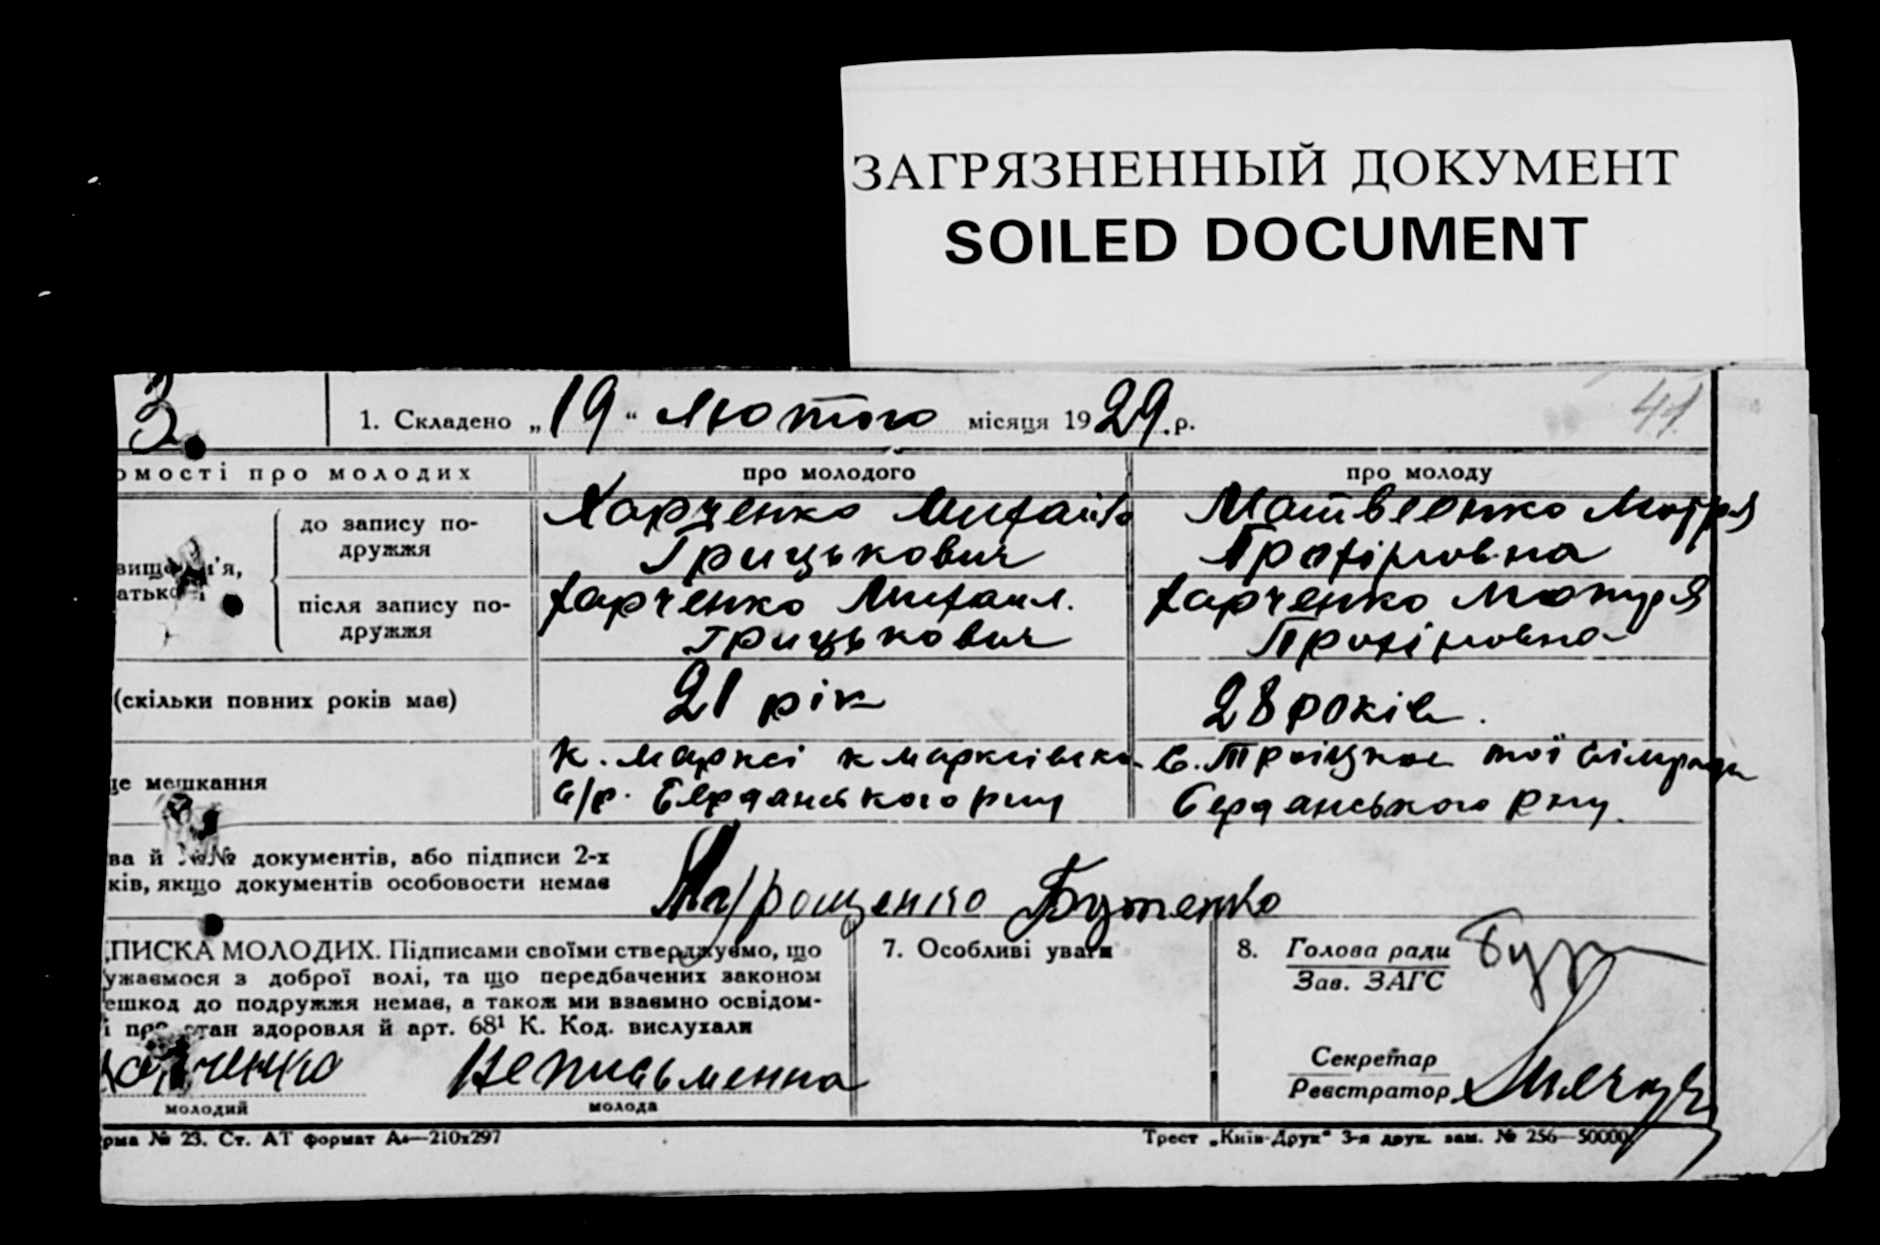 ЗАГРЯЗНЕННЫЙ ДОКУМЕНТ
SOILED DOCUMENT
3. 1. Складено „19" лютого місяця 1929.р. 41
омості про молодих про молодого про молоду
до запису по-дружжя Харченко Михайло Матвеенко Мотря
Грицькович Профімовна
вище м'я,
атькові
після запису по-дружжя Харченко Михаил. Харченко Мотря
Грицькович Профімовна
(скільки повних років має) 21 рік 28 років.
це мешкання К. Марксі К Марксівска с. Троіцкое тої сільради
с/р. Бердянського р-ну Бердянського р-ну.
ва й №№ документів, або підписи 2-х
ків, якщо документів особовости немає
Бутенко
ПИСКА МОЛОДИХ. Підписами своїми стверджуємо, що
ужаємося з доброї волі, та що передбачених законом
ешкод до подружжя немає, а також ми взаємно освідом-
і про стан здоровля й арт. 68¹ К. Код. вислухали
Харченко Неписьменна
молодий молода
7. Особливі уваги
8. Голова ради
Зав. ЗАГС
Секретар
Реєстратор
рма № 23. Ст. АТ формат А₄—210x297 Трест „Київ-Друк" 3-я друк. зам. № 256—50000.